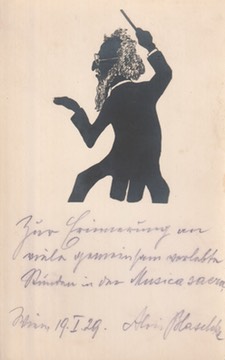 Zur Erinnerung an
viele gemeinsam verlebte
Stunden in der Musica sacra.
Wien, 19.I.29. Alois